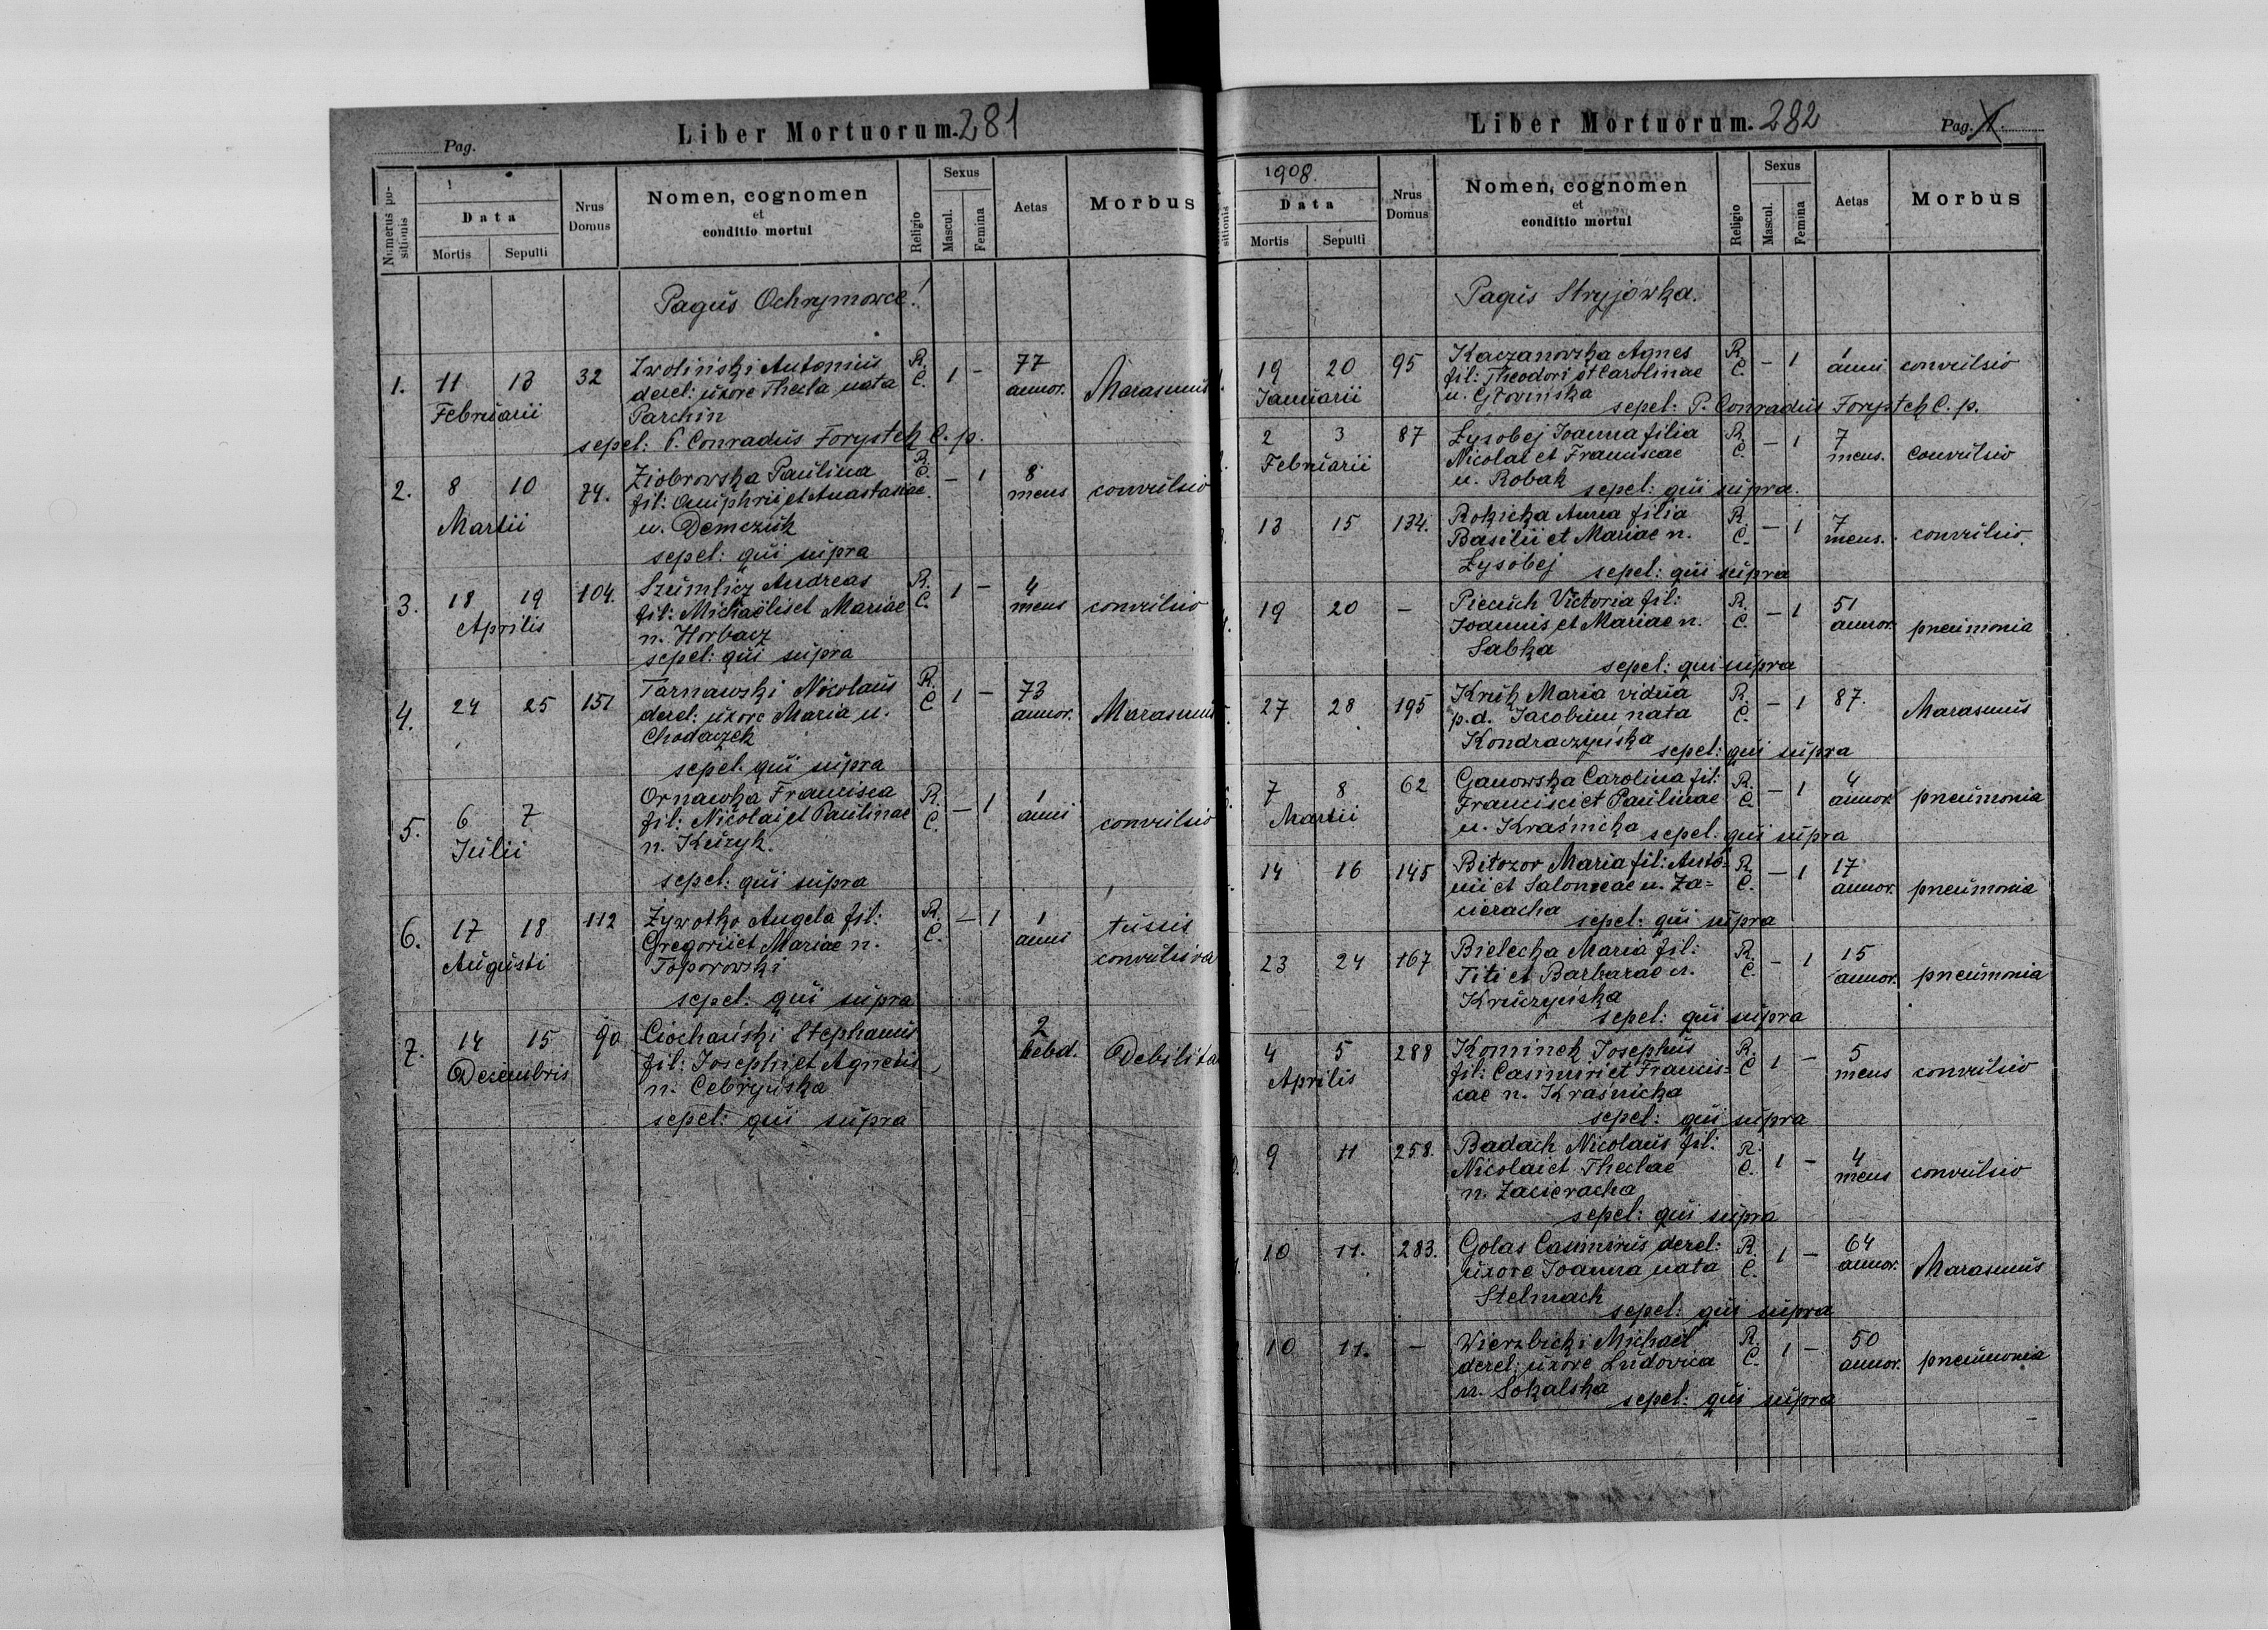 Pag.
Liber Mortuorum. 281
Numerus positionis
Data
Mortis Sepulti
Nrus Domus
Nomen, cognomen
et
conditio mortui
Religio
Sexus
Mascul. Femina
Aetas
Morbus
Pagus Ochrymowce!
1. 11 13 32 Zwoliński Antonius R. C. 1 – 77 annor. Marasmus
Februarii derel: uxore Thecla nata
Parchin
sepel: P. Conradus Forystek C. p.
2. 8 10 74. Ziobrowska Paulina R. C. – 1 8 mens convulsio
Martii fil: Onuphrii et Anastasiae
n. Demczuk
sepel: qui supra
3. 18 19 104. Szumlicz Andreas R. C. 1 – 4 mens convulsio
Aprilis fil: Michaëlis et Mariae
n. Horbacz
sepel: qui supra
4. 24 25 151 Tarnawski Nicolaus R. C 1 – 73 annor. Marasmus
derel: uxore Maria n.
Chodaczek
sepel. qui supra
5. 6 7 Ornawka Francisca R. C. – 1 1 anni convulsio
Julii fil: Nicolai et Paulinae
n. Kuzyk.
sepel: qui supra
6. 17 18 112 Żywotko Angela fil: R. C. – 1 1 anni tussis
Augusti Gregorii et Mariae n. convulsiva
Toporowski
sepel: qui supra
7. 14 15 90 Ciochański Stephanus 2 hebd. Debilita
Decembris fil: Josephi et Agnetis
n. Cebryńska
sepel: qui supra
Liber Mortuorum. 282
Pag. 1.
sitionis
1908.
Data
Mortis Sepulti
Nrus Domus
Nomen, cognomen
et
conditio mortui
Religio
Sexus
Mascul. Femina
Aetas
Morbus
Pagus Stryjówka.
19 20 95 Kaczanowska Agnes R. C. – 1 1 anni convulsio
Januarii fil: Theodori et Carolinae
n. Głowińska sepel: P. Conradus Forystek C. p.
2 3 87 Łysobej Joanna filia R. C. – 1 7 mens. convulsio
Februarii Nicolai et Franciscae
n. Robak sepel: qui supra.
13 15 134. Rokicka Anna filia R. C. – 1 7 mens. convulsio.
Basilii et Mariae n.
Łysobej sepel: qui supra
19 20 – Pieniuch Victoria fil: R. C. – 1 51 annor. pneumonia
Joannis et Mariae n.
Sabka
sepel: qui supra
27 28 195 Kruk Maria vidua R. C. – 1 87. Marasmus
p.d. Jacobum nata
Kondraczyńska sepel: qui supra
7 8 62 Ganowska Carolina fil: R. C. – 1 4 annor. pneumonia
Martii Francisci et Paulinae
n. Kraśnicka sepel. qui supra
14 16 145 Bitozor Maria fil: Anto= R. C. – 1 17 annor. pneumonia
nii et Salomeae n. Za=
cieracha sepel: qui supra
23 24 167 Bielecka Maria fil: R. C. – 1 15 annor. pneumonia
Titi et Barbarae n.
Kruczyńska
sepel: qui supra
4 5 288 Kominek Josephus R. C 1 – 5 mens convulsio
Aprilis fil: Casimiri et Francis=
cae n. Kraśnicka
sepel: qui supra
9 11 258. Badach Nicolaus fil: R. C. 1 – 4 mens convulsio
Nicolai et Theclae
n. Zacieracha
sepel: qui supra
10 11. 283. Golas Casimirus derel: R. C. 1 – 64 annor. Marasmus
uxore Joanna nata
Stelmach
sepel: qui supra
10 11. – Wierzbicki Michaël R. C. 1 – 50 annor. pneumonia
derel: uxore Ludovica
n. Sokalska sepel: qui supra